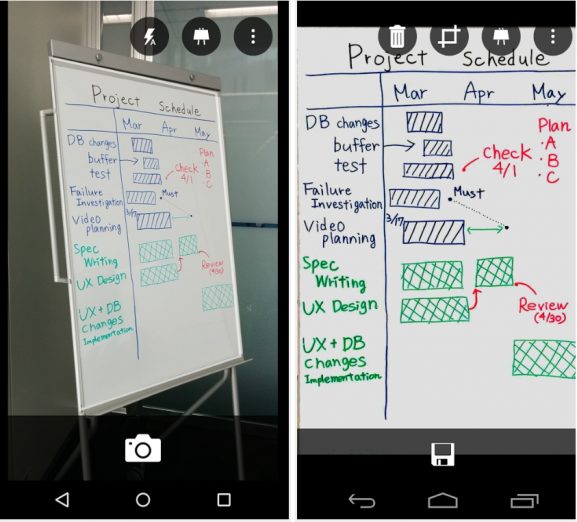 Project Schedule
Mar Apr May
DB changes
buffer
test
check
4/1
Plan
A
B
C
Failure
Investigation
Must
3/17
Video
planning
Spec
Writing
UX Design
Review
(4/30)
UX + DB
Changes
Implementation
Project Schedule
Mar Apr May
DB changes
buffer
test
check
4/1
Plan
·A
·B
·C
Failure
Investigation
Must
3/17
Video
planning
Spec
Writing
UX Design
Review
(4/30)
UX + DB
Changes
Implementation